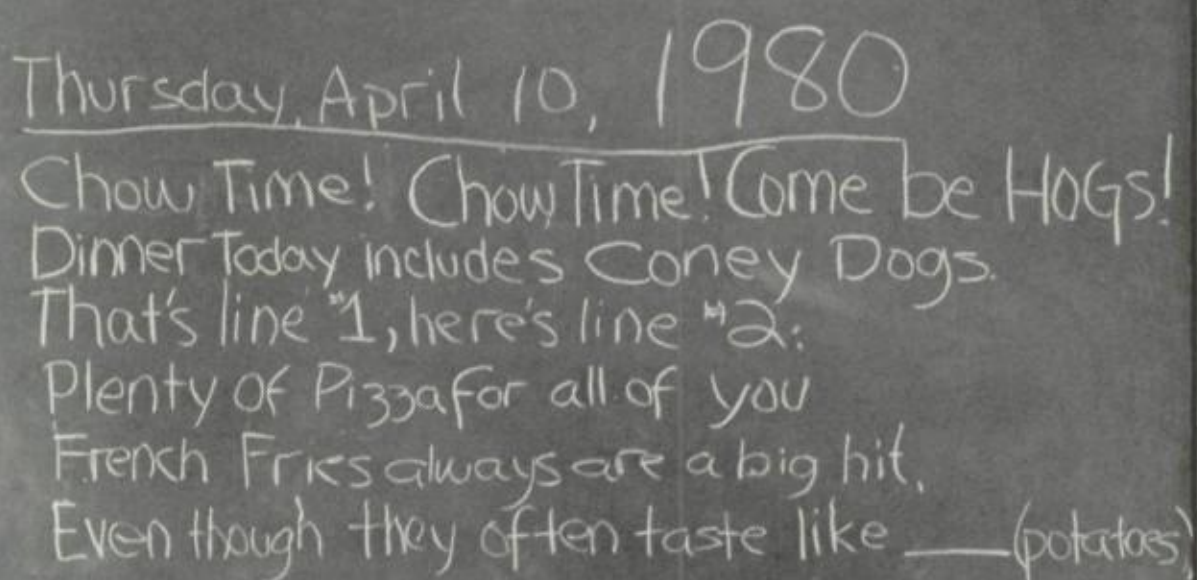 Thursday, April 10, 1980
Chow Time! Chow Time! Come be HOGS!
Dinner Today includes Coney Dogs.
That's line #1, here's line #2:
Plenty of Pizza for all of you
French Fries always are a big hit,
Even though they often taste like ____(potatoes)